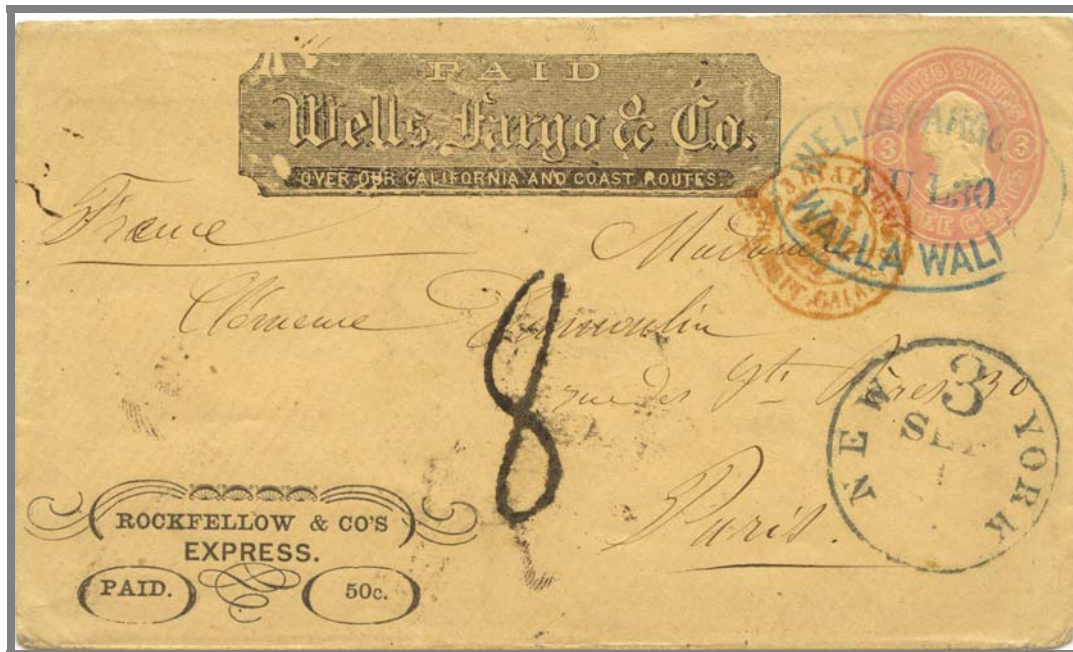 PAID
Wells, Fargo & Co.
OVER OUR CALIFORNIA AND COAST ROUTES.
UNITED STATES
3 3
WELLS FARGO
JUL 30
WALLA WALL
France
Madame
Clémence Dumoulin
rue des Sts Pères 30
Paris.
8
NEW YORK
3
SEP
ROCKFELLOW & CO'S
EXPRESS.
PAID. 50c.